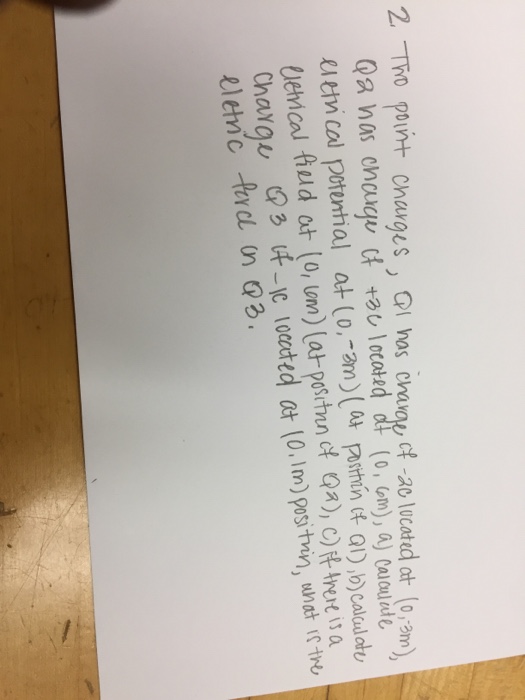 2. Two point charges, Q1 has charge of -2c located at (0,-3m),
Q2 has charge of +3c located at (0, 6m), a) calculate
eletrical potential at (0,-3m) (at positin of Q1), b) calculate
eletrical field at (0, 6m) (at positin of Q2), c) if there is a
charge Q3 of -1c located at (0,1m) positin, what is the
eletric force on Q3.